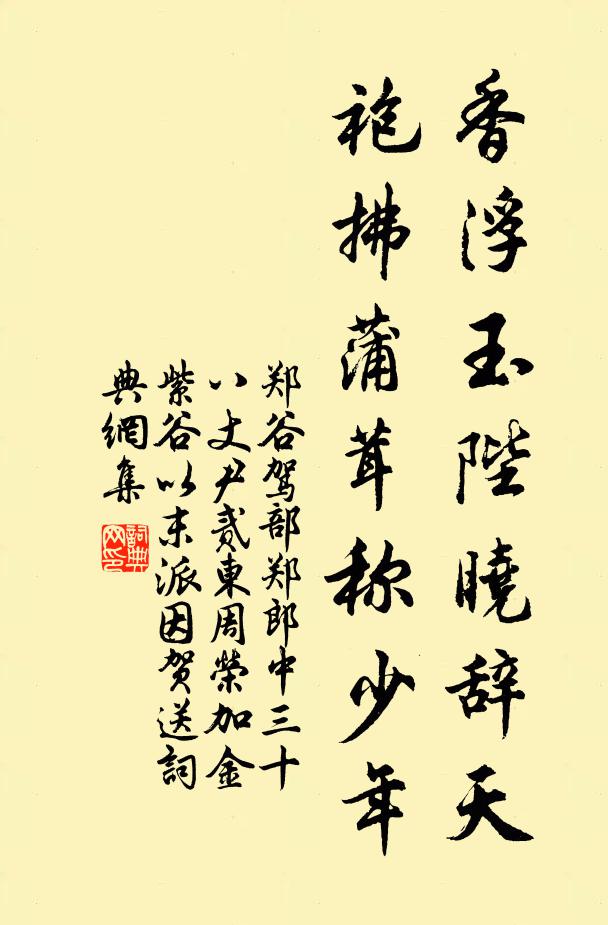 香浮玉陛曉辞天
袍拂蒲茸称少年
郑谷駕部郑郎中三十
八丈尹貳東周榮加金
紫谷以末派因賀送詞
典網集
詞典网印